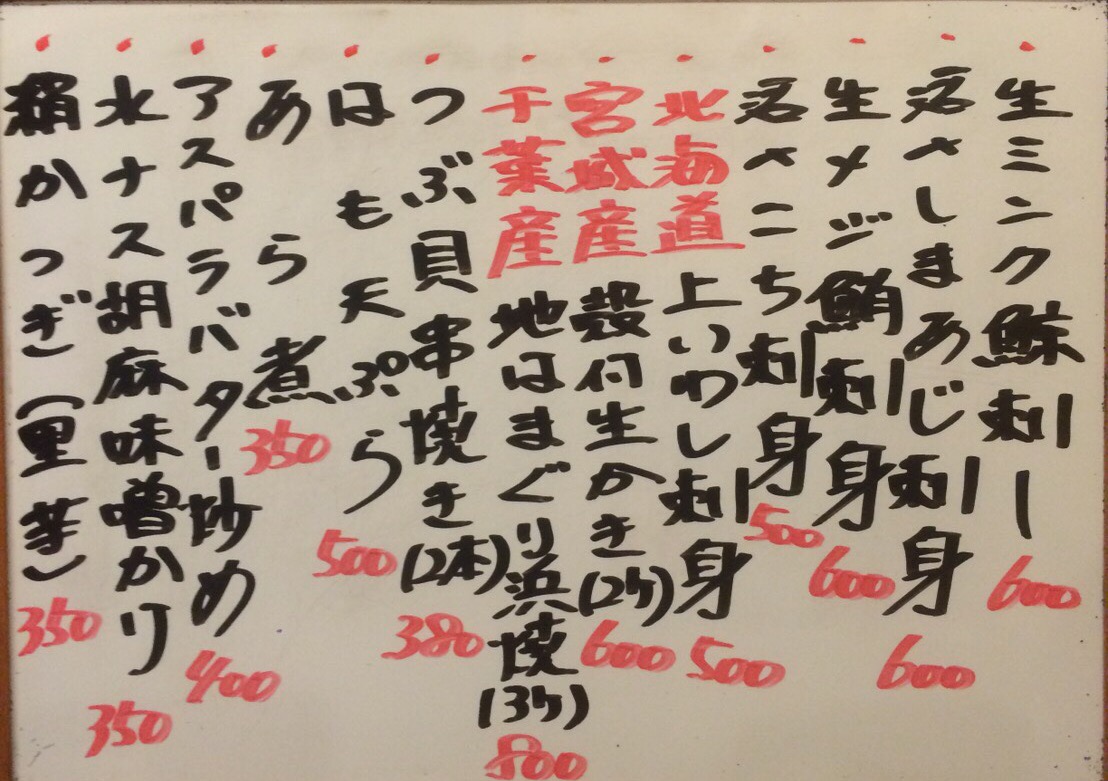 生ミンク鯨刺し 600
活〆しまあじ刺身 600
生メジ鮪刺身 600
活〆こち刺身 500
北海道 上いわし刺身 500
宮城産 殻付生かき(2ケ) 600
千葉産 地はまぐり浜焼(3ケ) 800
つぶ貝串焼き(2本) 380
はも天ぷら 500
あら煮 350
アスパラバター炒め 400
水ナス胡麻味噌かけ 350
絹かつぎ(里芋) 350